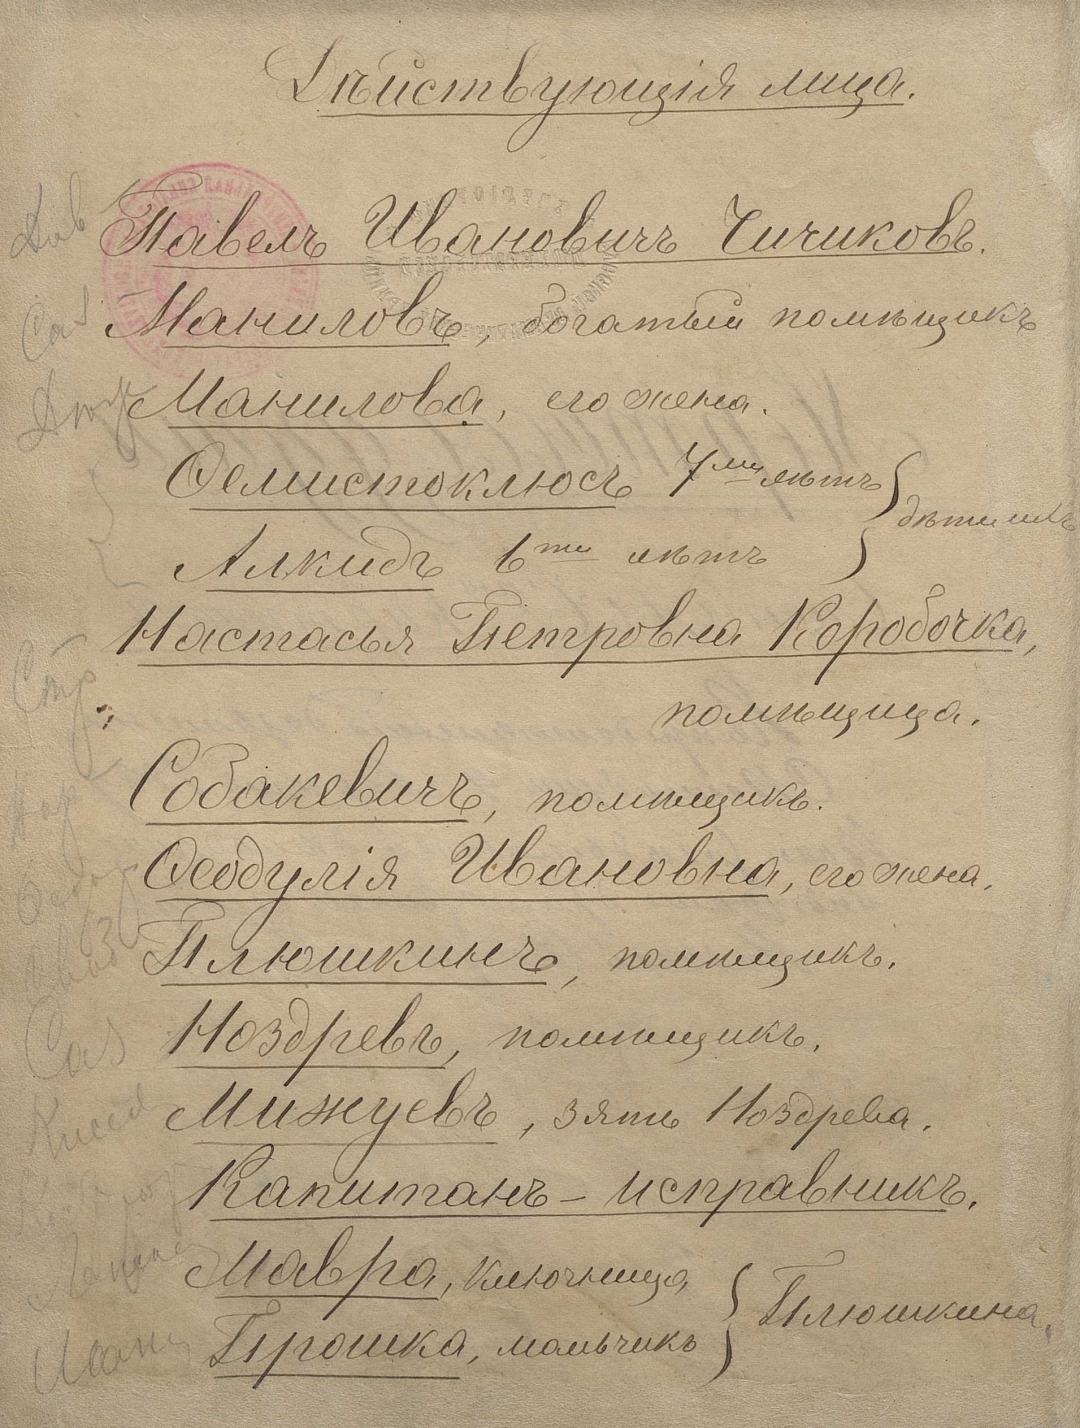 Дѣйствующія лица.
Павелъ Ивановичъ Чичиковъ.
Маниловъ, богатый помѣщикъ
Манилова, его жена.
Ѳемистоклюсъ 7ми лѣтъ
дѣти ихъ
Алкидъ 6ти лѣтъ
Настасья Петровна Коробочка,
помѣщица.
Собакевичъ, помѣщикъ.
Ѳеодулія Ивановна, его жена.
Плюшкинъ, помѣщикъ.
Ноздревъ, помѣщикъ.
Мижуевъ, зять Ноздрева.
Капитанъ-исправникъ.
Мавра, ключница
Плюшкина.
Прошка, мальчикъ